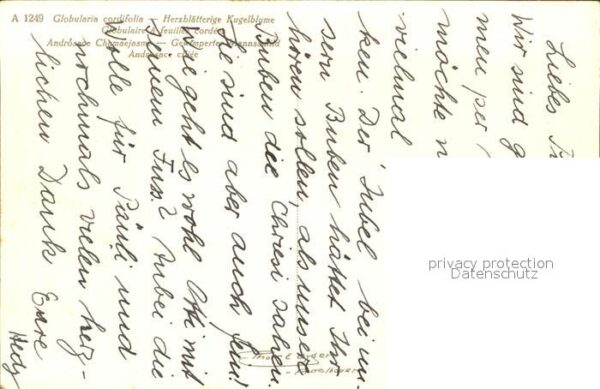 A 1249 Globularia cordifolia — Herzblätterige Kugelblume
Globulaire à feuilles cordées
Androsace Chamaejasme — Gewimperter Mannsschild
Androsace ciliée
Liebes
Wir sind
men per
möchte
vielmal
ken. Der Jubel bei un-
sern Buben hättet Ihr
hören sollen, als unsere
Buben die Chriesi sahen.
Sie sind aber auch fein!
Wie geht es wohl Otti mit
seinem Fuss? Anbei die
Wolle für Päuli und
nochmals vielen herz-
lichen Dank Eure
Hedy
privacy protection
Datenschutz